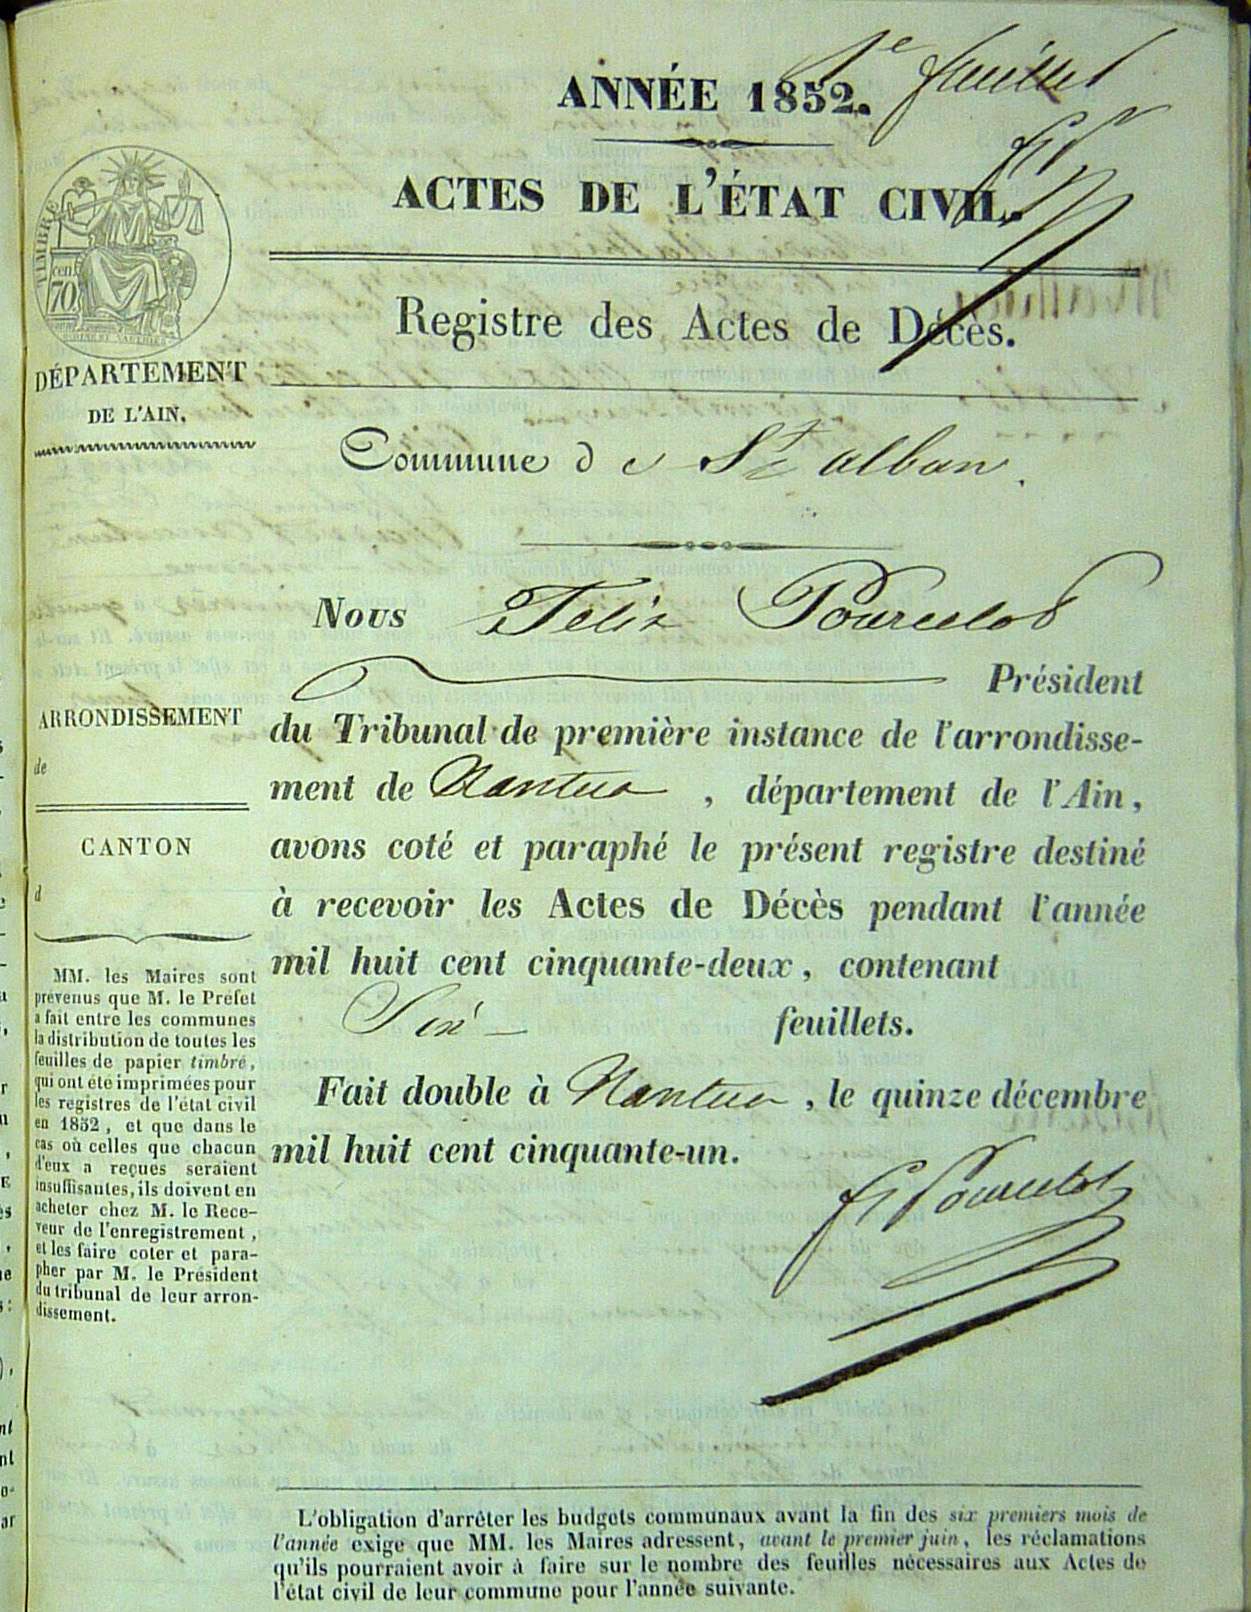 1e feuillet
ANNÉE 1852.
ACTES DE L'ÉTAT CIVIL.
Registre des Actes de Décès.
TIMBRE
cen.
70.
DÉPARTEMENT
DE L'AIN.
Commune de St alban.
Nous Félix Pourcelot
Président
du Tribunal de première instance de l'arrondisse-
ment de Nantua, département de l'Ain,
avons coté et paraphé le présent registre destiné
à recevoir les Actes de Décès pendant l'année
mil huit cent cinquante-deux, contenant
Six feuillets.
Fait double à Nantua, le quinze décembre
mil huit cent cinquante-un.
F Pourcelot
ARRONDISSEMENT
de
CANTON
d
MM. les Maires sont
prévenus que M. le Préfet
a fait entre les communes
la distribution de toutes les
feuilles de papier timbré,
qui ont été imprimées pour
les registres de l'état civil
en 1852, et que dans le
cas où celles que chacun
d'eux a reçues seraient
insuffisantes, ils doivent en
acheter chez M. le Rece-
veur de l'enregistrement,
et les faire coter et para-
pher par M. le Président
du tribunal de leur arron-
dissement.
L'obligation d'arrêter les budgets communaux avant la fin des six premiers mois de
l'année exige que MM. les Maires adressent, avant le premier juin, les réclamations
qu'ils pourraient avoir à faire sur le nombre des feuilles nécessaires aux Actes de
l'état civil de leur commune pour l'année suivante.